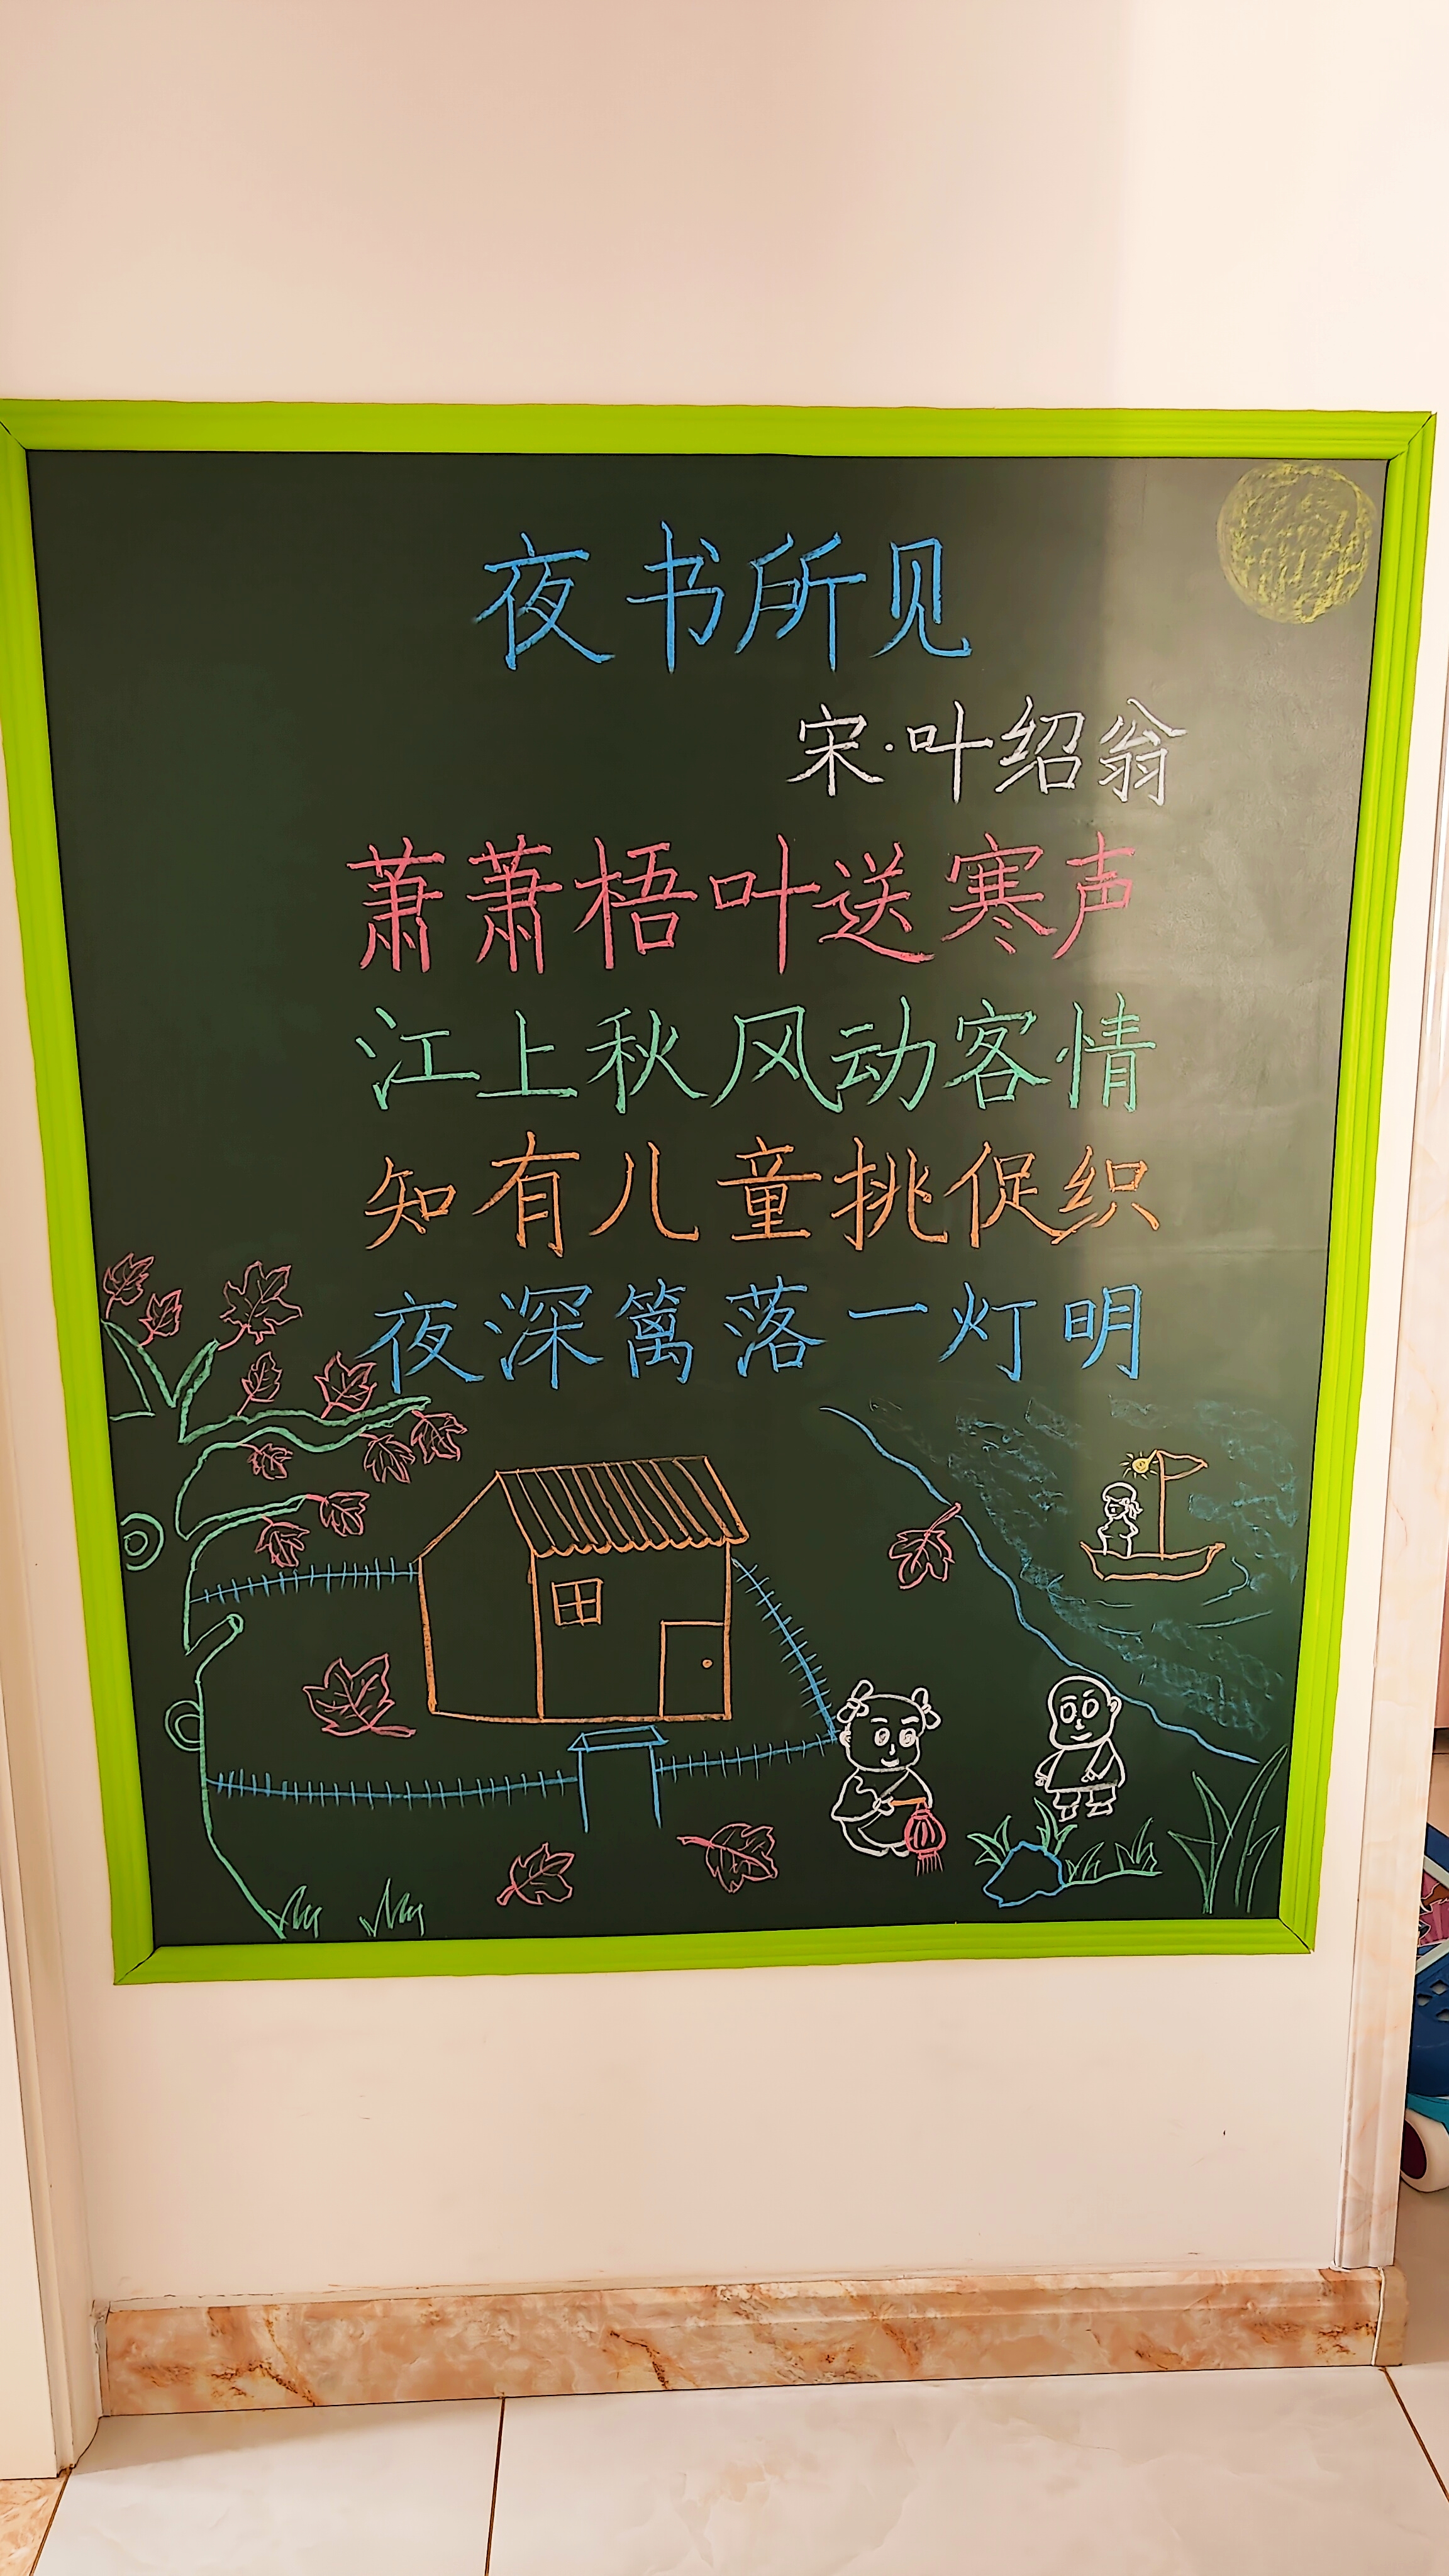 夜书所见
宋·叶绍翁
萧萧梧叶送寒声
江上秋风动客情
知有儿童挑促织
夜深篱落一灯明